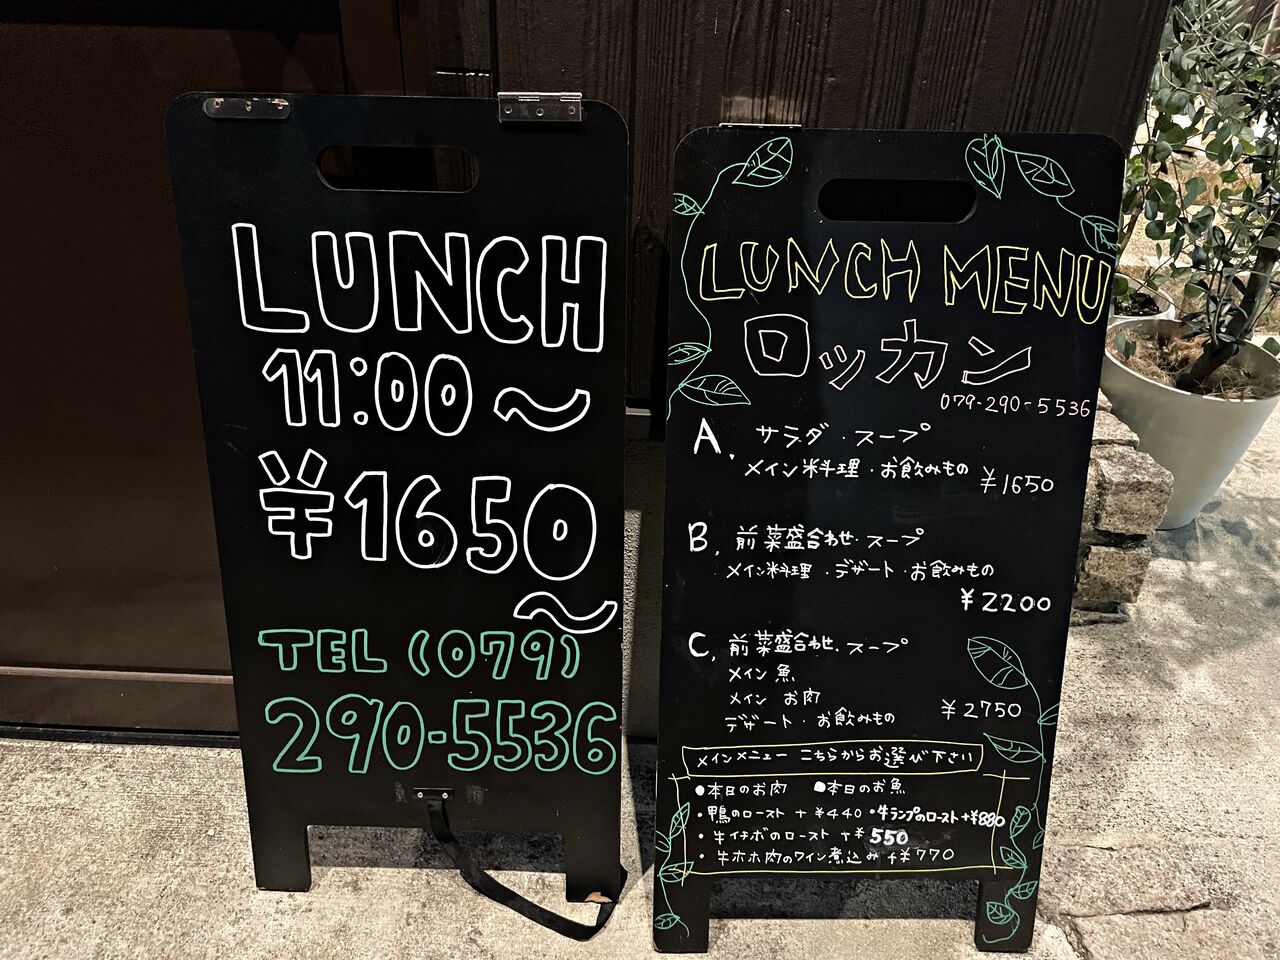 LUNCH
11:00～
¥1650
～
TEL (079)
290-5536
LUNCH MENU
ロッカン
079-290-5536
A. サラダ・スープ
メイン料理・お飲みもの ¥1650
B. 前菜盛合わせ・スープ
メイン料理・デザート・お飲みもの
¥2200
C. 前菜盛合わせ・スープ
メイン 魚
メイン お肉
デザート・お飲みもの ¥2750
メインメニュー こちらからお選び下さい
●本日のお肉 ●本日のお魚
・鴨のロースト +¥440 ・牛ランプのロースト+¥880
・牛イチボのロースト +¥550
・牛ホホ肉のワイン煮込み +¥770